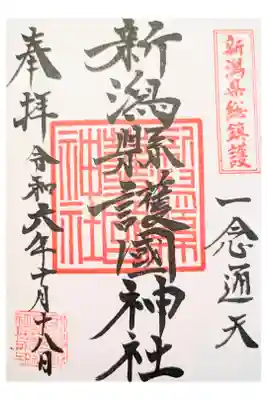 新潟県総鎮護
一念通天
新潟縣護國神社
奉拝
令和六年十月十八日